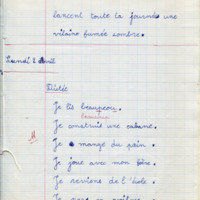 lancent toute la journée une
vilaine fumée sombre.
Lundi 2 Avril
Dictée
Je lis beaucoup.
beaucoup
Je construis une cabane.
Je mange du pain.
Je joue avec mon frère.
Je reviens de l'école.